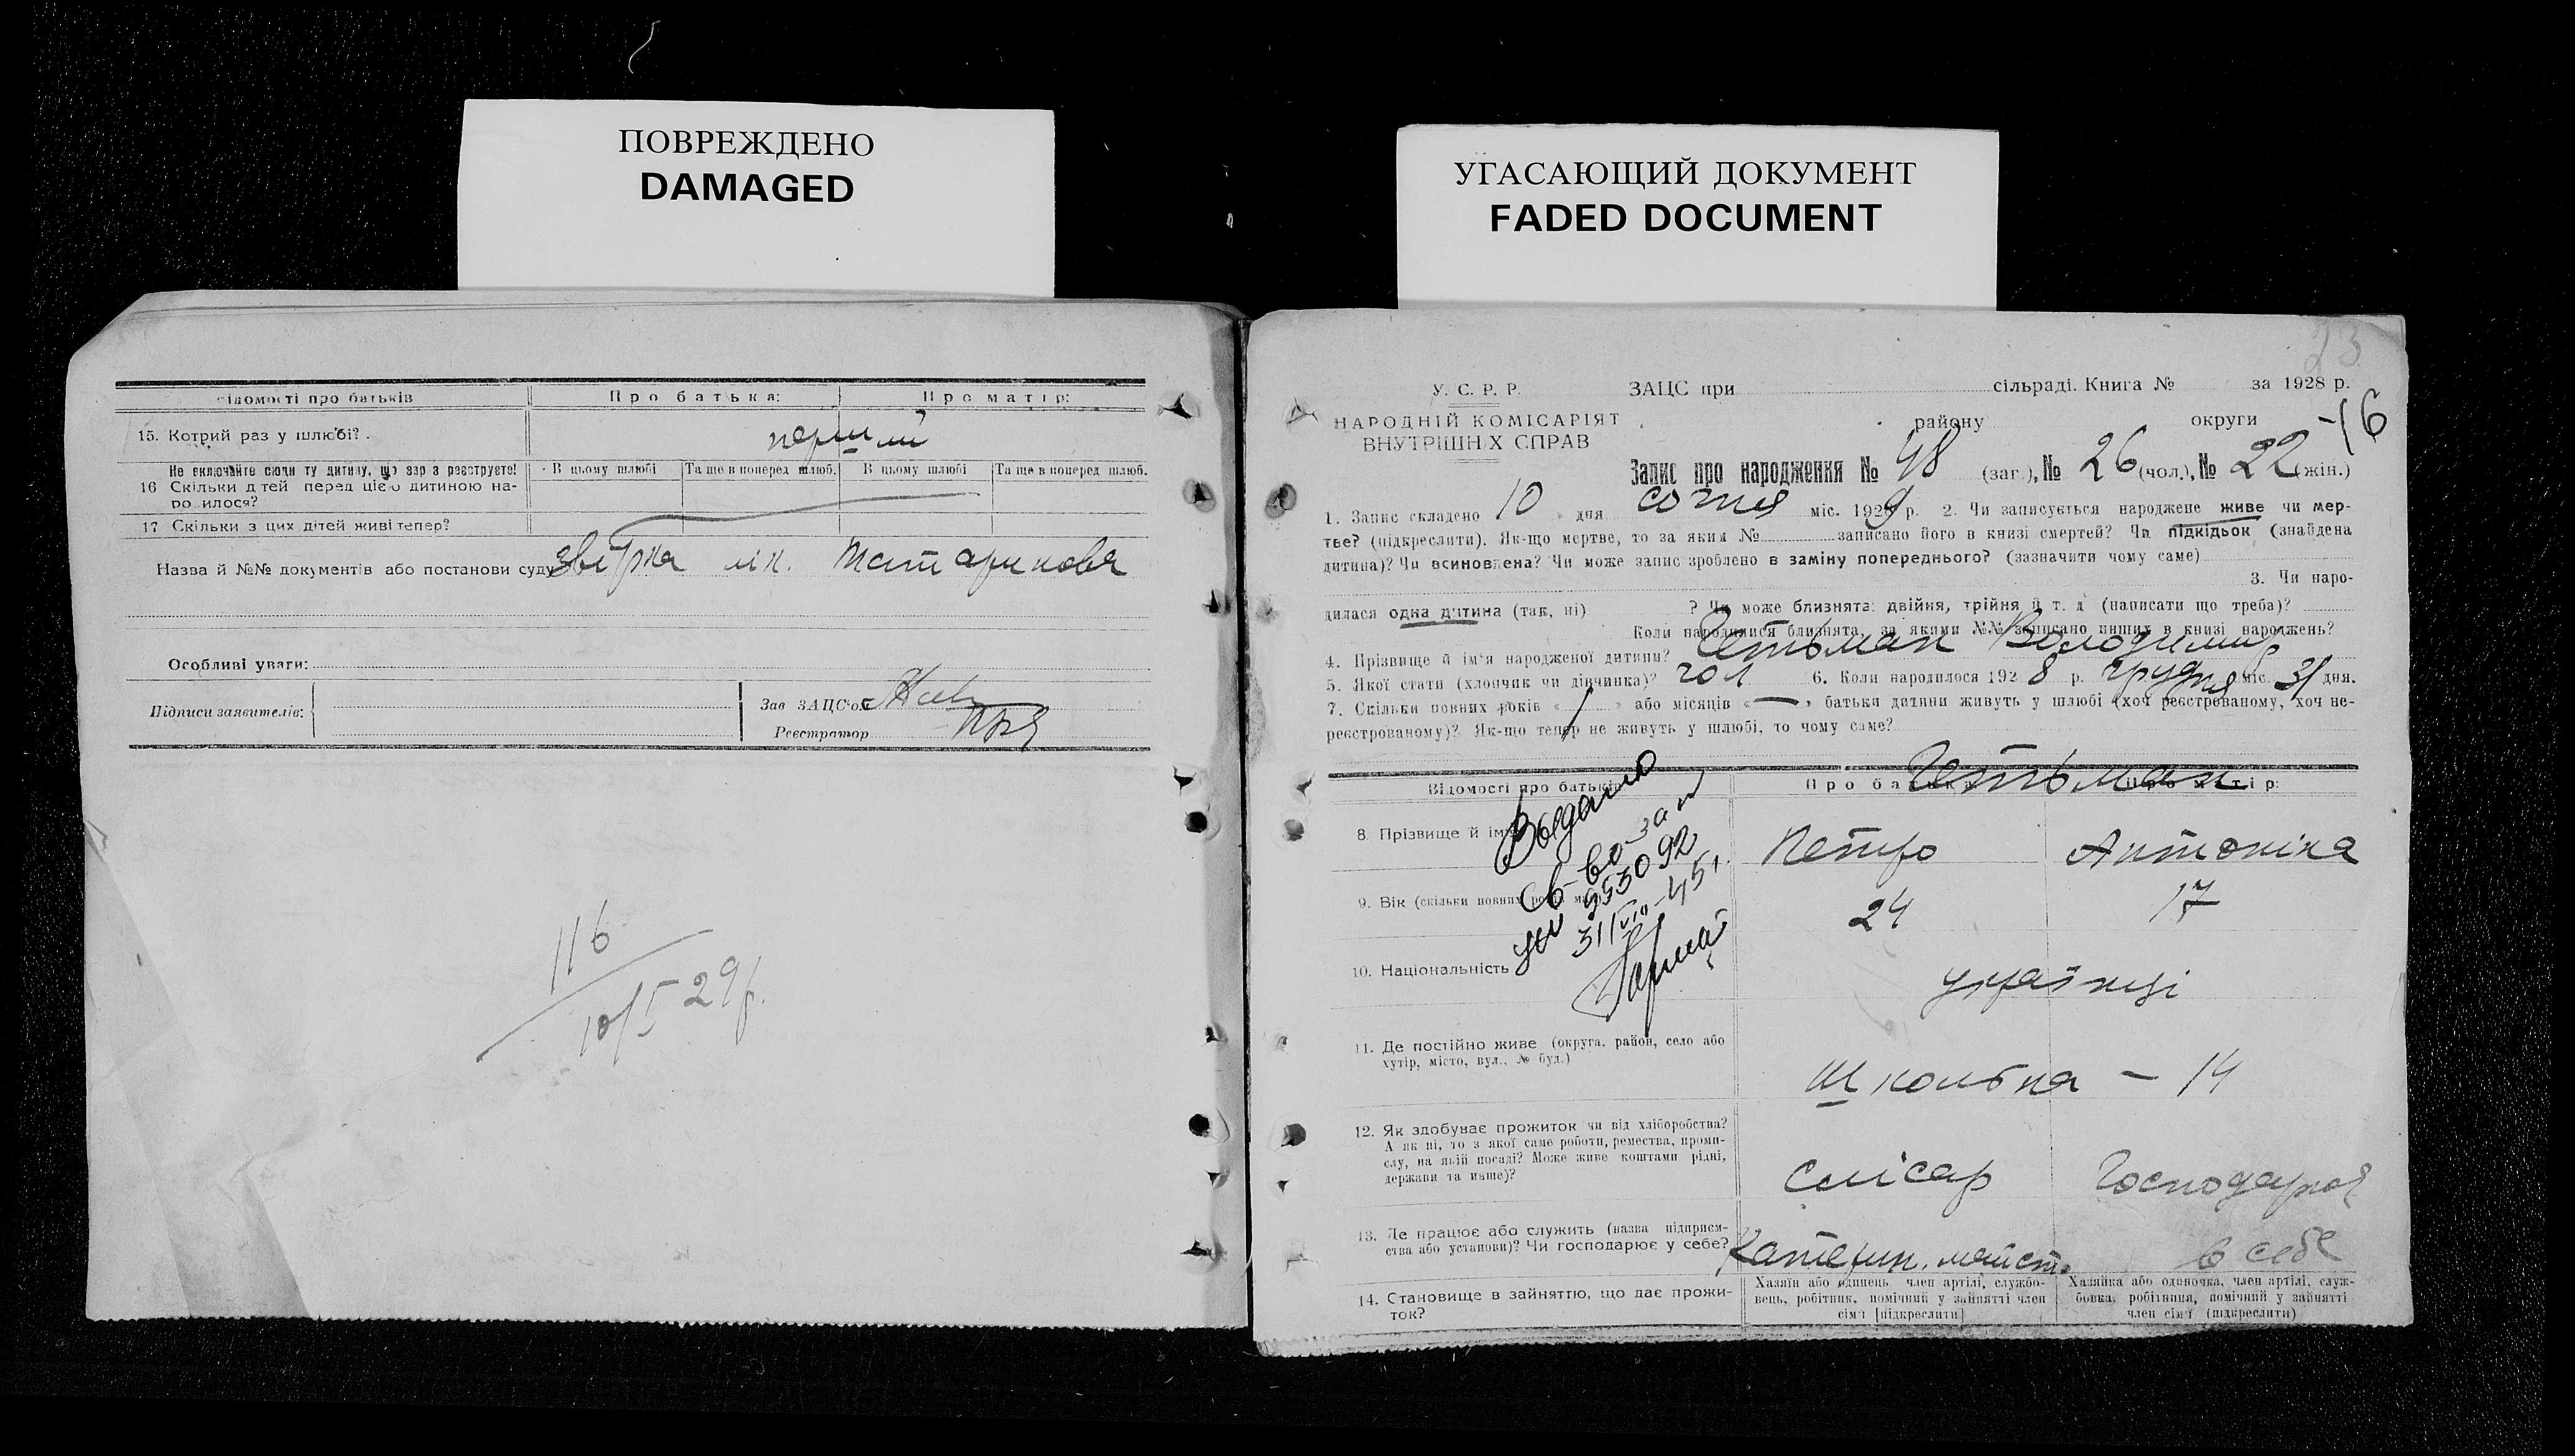 ПОВРЕЖДЕНО
DAMAGED
УГАСАЮЩИЙ ДОКУМЕНТ
FADED DOCUMENT
відомості про батьків
Про батька:
Про матір:
15. Котрий раз у шлюбі?
перший
Не включайте сюди ту дитину, що зар з реєструєте!
В цьому шлюбі
Та ще в поперед шлюб.
В цьому шлюбі
Та ще в поперед шлюб.
16 Скільки дітей перед цією дитиною на-
родилося?
17 Скільки з цих дітей живі тепер?
Назва й №№ документів або постанови суду
Особливі уваги:
Підписи заявителів:
Зав ЗАЦС'ом
Реєстратор
116
10/I 29р.
23
У. С. Р. Р.
НАРОДНІЙ КОМІСАРІЯТ
ВНУТРІШНІХ СПРАВ
ЗАЦС при сільраді. Книга № за 1928 р.
району округи
-16
Запис про народження № 48 (заг.), № 26 (чол.), № 22 (жін.)
1. Запис складено 10 дня січня міс. 1929 р. 2. Чи записується народжене живе чи мер-
тве? (підкреслити). Як-що мертве, то за яким № записано його в книзі смертей? Чи підкідьок (знайдена
дитина)? Чи всиновлена? Чи може запис зроблено в заміну попереднього? (зазначити чому саме)
3. Чи наро-
дилася одна дитина (так, ні) ? Чи може близнята: двійня, трійня й т. д (написати що треба)?
Коли народилися близнята, за якими №№ записано инших в книзі народжень?
4. Прізвище й ім'я народженої дитини? Гетьман Володимир
5. Якої стати (хлопчик чи дівчинка)? чол 6. Коли народилося 1928 р. грудня міс. 31 дня.
7. Скільки повних років « 1 » або місяців « — » батьки дитини живуть у шлюбі (хоч реєстрованому, хоч не-
реєстрованому)? Як-що тепер не живуть у шлюбі, то чому саме?
Відомості про батьків
Про батька
Про матір:
Гетьман
8. Прізвище й ім'я
Петро
Антоніна
Выдано
св-во
953092
31/VIII-45 г.
9. Вік (скільки повних років має)
24
17
10. Національність
українці
11. Де постійно живе (округа, район, село або
хутір, місто, вул., № буд.)
Школьна - 14
12. Як здобуває прожиток чи від хліборобства?
А як ні, то з якої саме роботи, ремества, проми-
слу, на якій посаді? Може живе коштами рідні,
держави та инше)?
Слісар
Господарка
13. Де працює або служить (назва підприєм-
ства або установи)? Чи господарює у себе?
Катерин. майст.
в себе
14. Становище в зайняттю, що дає прожи-
ток?
Хазяїн або одинець, член артілі, службо-
вець, робітник, помічний у зайнятті член
сім'ї [підкреслити]
Хазяйка або одиночка, член артілі, служ-
бовка, робітниця, помічний у зайнятті
член сім'ї (підкреслити)